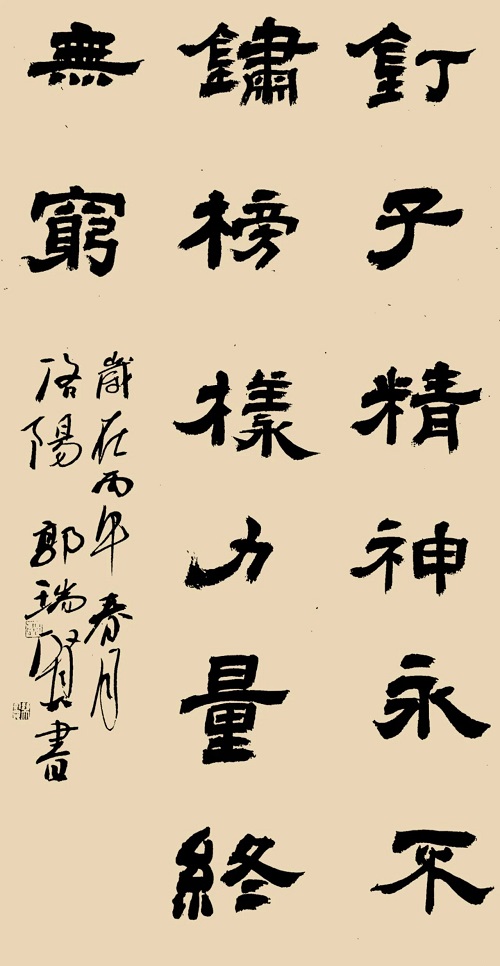 釘子精神永不
鏽榜樣力量終
無窮
歲在丙春月
洛陽 郭瑞賢書